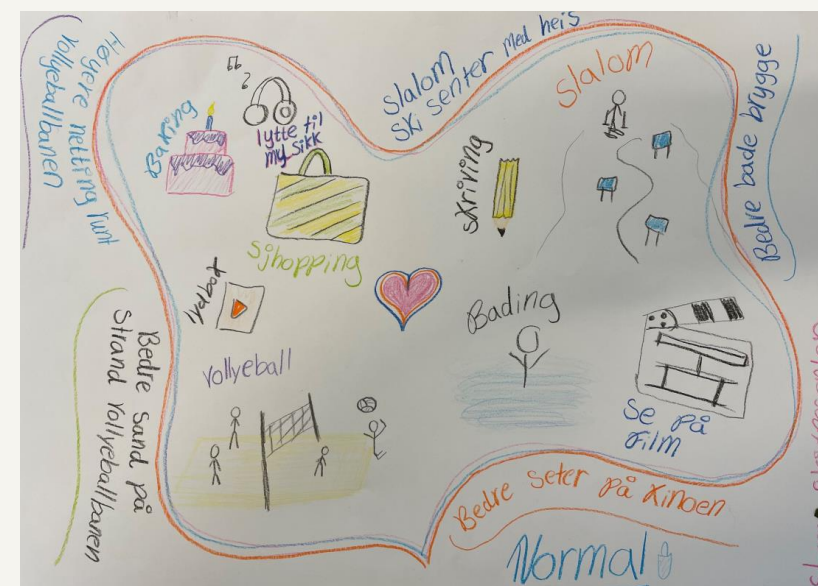 Høyere netting runt
vollyeballbanen
Baking
lytte til
mysikk
Sjhopping
Slalom
Ski senter med heis
Slalom
Skriving
Bedre bade brygge
vollyeball
Bading
Se på
Film
Bedre sand på
Strand vollyeballbanen
Bedre seter på Kinoen
Normal